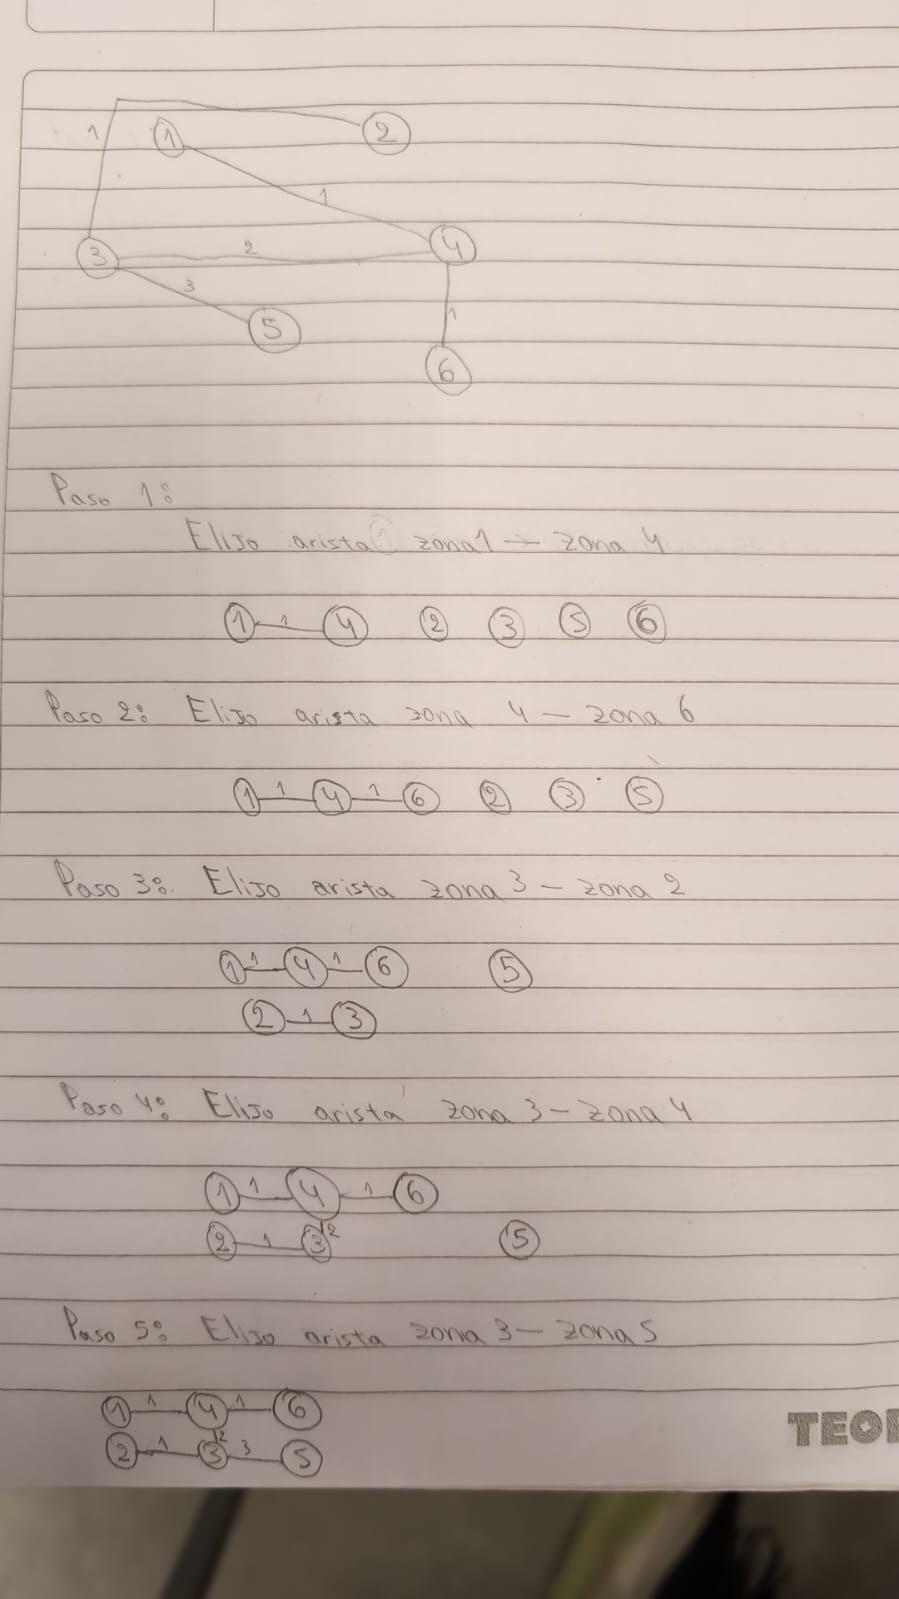 1
1
2
1
3
2
4
3
5
1
6
Paso 1:
Elijo arista zona1 → zona 4
1 1 4 2 3 5 6
Paso 2: Elijo arista zona 4 – zona 6
1 1 4 1 6 2 3 5
Paso 3: Elijo arista zona 3 – zona 2
1 1 4 1 6 5
2 1 3
Paso 4: Elijo arista zona 3 – zona 4
1 1 4 1 6
2 1 3 2 5
Paso 5: Elijo arista zona 3 – zona 5
1 1 4 1 6
2 1 3 2 3 5